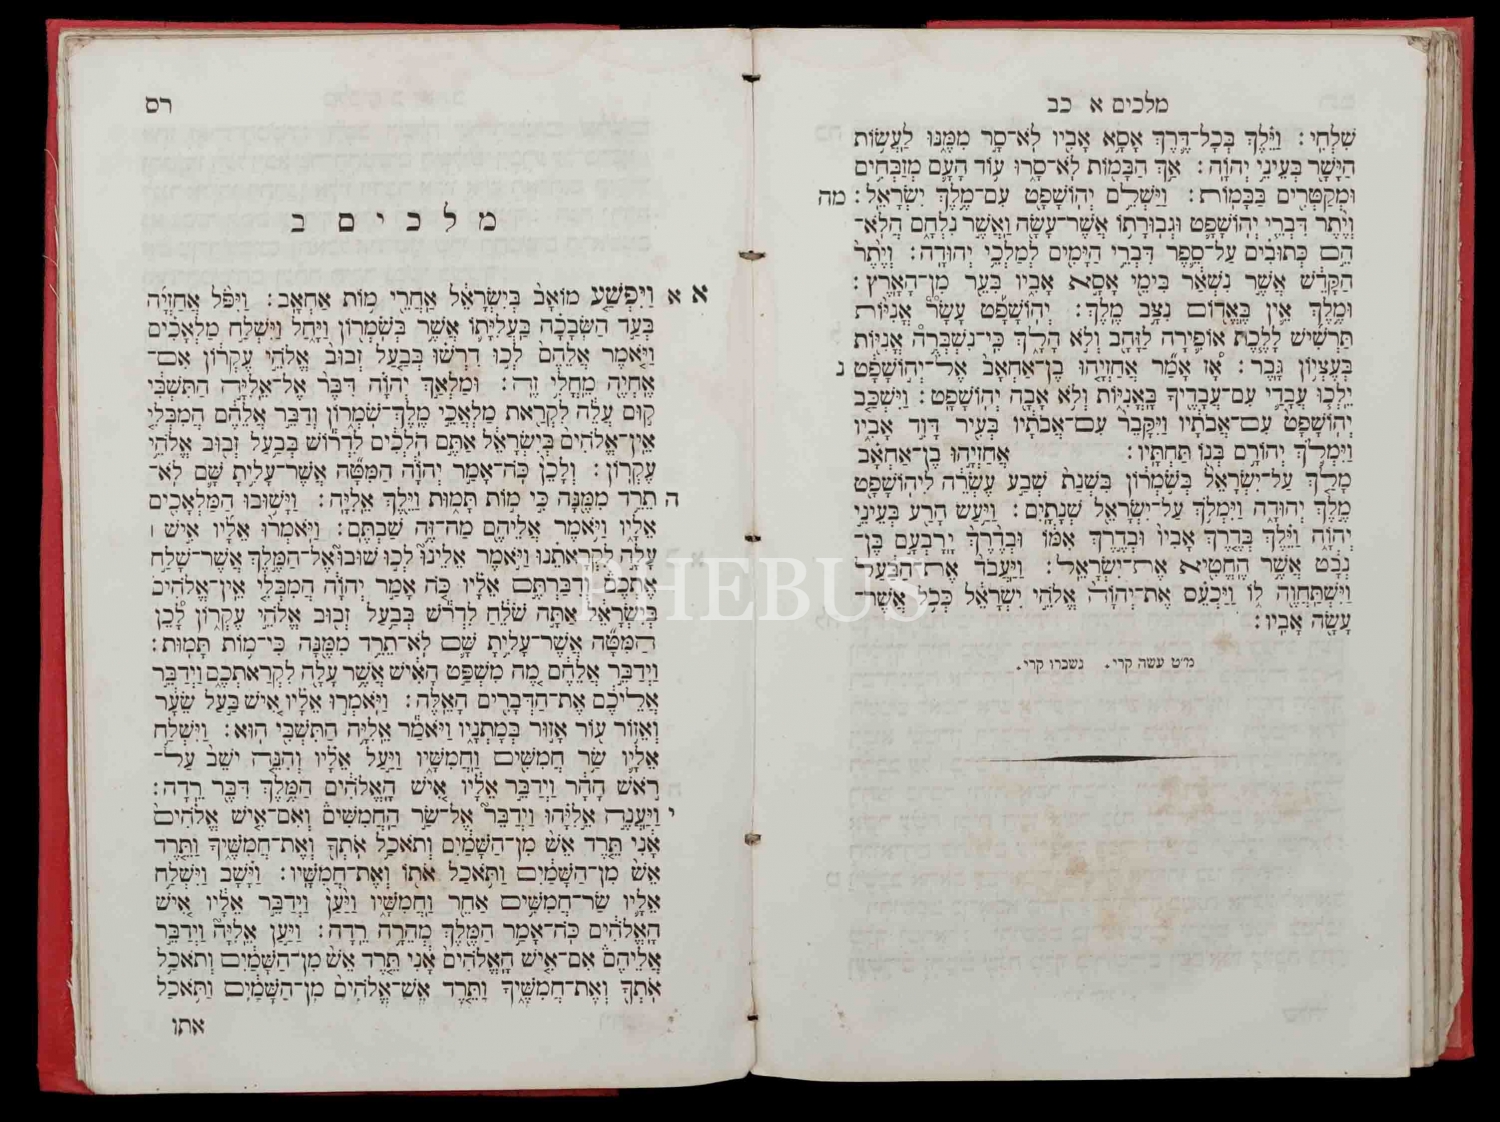 מלכים א כב
שִׁלְחִי׃ וַיֵּלֶךְ בְּכָל־דֶּרֶךְ אָסָא אָבִיו לֹא־סָר מִמֶּנּוּ לַעֲשׂוֹת
הַיָּשָׁר בְּעֵינֵי יְהוָֹה׃ אַךְ הַבָּמוֹת לֹא־סָרוּ עוֹד הָעָם מְזַבְּחִים
וּמְקַטְּרִים בַּבָּמוֹת׃ וַיַּשְׁלֵם יְהוֹשָׁפָט עִם־מֶלֶךְ יִשְׂרָאֵל׃ מה
וְיֶתֶר דִּבְרֵי יְהוֹשָׁפָט וּגְבוּרָתוֹ אֲשֶׁר־עָשָׂה וַאֲשֶׁר נִלְחָם הֲלֹא־
הֵם כְּתוּבִים עַל־סֵפֶר דִּבְרֵי הַיָּמִים לְמַלְכֵי יְהוּדָה׃ וְיֶתֶר
הַקָּדֵשׁ אֲשֶׁר נִשְׁאַר בִּימֵי אָסָא אָבִיו בִּעֵר מִן־הָאָרֶץ׃
וּמֶלֶךְ אֵין בֶּאֱדוֹם נִצָּב מֶלֶךְ׃ יְהוֹשָׁפָט עָשַׂר אֳנִיּוֹת
תַּרְשִׁישׁ לָלֶכֶת אוֹפִירָה לַזָּהָב וְלֹא הָלָךְ כִּי־נִשְׁבְּרֻה אֳנִיּוֹת
בְּעֶצְיוֹן גָּבֶר׃ אָז אָמַר אֲחַזְיָהוּ בֶן־אַחְאָב אֶל־יְהוֹשָׁפָט נ
יֵלְכוּ עֲבָדַי עִם־עֲבָדֶיךָ בָּאֳנִיּוֹת וְלֹא אָבָה יְהוֹשָׁפָט׃ וַיִּשְׁכַּב
יְהוֹשָׁפָט עִם־אֲבֹתָיו וַיִּקָּבֵר עִם־אֲבֹתָיו בְּעִיר דָּוִד אָבִיו
וַיִּמְלֹךְ יְהוֹרָם בְּנוֹ תַּחְתָּיו׃ אֲחַזְיָהוּ בֶן־אַחְאָב
מָלַךְ עַל־יִשְׂרָאֵל בְּשֹׁמְרוֹן בִּשְׁנַת שְׁבַע עֶשְׂרֵה לִיהוֹשָׁפָט
מֶלֶךְ יְהוּדָה וַיִּמְלֹךְ עַל־יִשְׂרָאֵל שְׁנָתָיִם׃ וַיַּעַשׂ הָרַע בְּעֵינֵי
יְהוָֹה וַיֵּלֶךְ בְּדֶרֶךְ אָבִיו וּבְדֶרֶךְ אִמּוֹ וּבְדֶרֶךְ יָרָבְעָם בֶּן־
נְבָט אֲשֶׁר הֶחֱטִיא אֶת־יִשְׂרָאֵל׃ וַיַּעֲבֹד אֶת־הַבַּעַל
וַיִּשְׁתַּחֲוֶה לוֹ וַיַּכְעֵס אֶת־יְהוָֹה אֱלֹהֵי יִשְׂרָאֵל כְּכֹל אֲשֶׁר־
עָשָׂה אָבִיו׃
מ״ט עשה קרי. נשברו קרי.
רס
מלכים ב
א א וַיִּפְשַׁע מוֹאָב בְּיִשְׂרָאֵל אַחֲרֵי מוֹת אַחְאָב׃ וַיִּפֹּל אֲחַזְיָה
בְּעַד הַשְּׂבָכָה בַּעֲלִיָּתוֹ אֲשֶׁר בְּשֹׁמְרוֹן וַיָּחַל וַיִּשְׁלַח מַלְאָכִים
וַיֹּאמֶר אֲלֵהֶם לְכוּ דִרְשׁוּ בְּבַעַל זְבוּב אֱלֹהֵי עֶקְרוֹן אִם־
אֶחְיֶה מֵחֳלִי זֶה׃ וּמַלְאַךְ יְהוָֹה דִּבֶּר אֶל־אֵלִיָּה הַתִּשְׁבִּי
קוּם עֲלֵה לִקְרַאת מַלְאֲכֵי מֶלֶךְ־שֹׁמְרוֹן וְדַבֵּר אֲלֵהֶם הַמִבְּלִי
אֵין־אֱלֹהִים בְּיִשְׂרָאֵל אַתֶּם הֹלְכִים לִדְרוֹשׁ בְּבַעַל זְבוּב אֱלֹהֵי
עֶקְרוֹן׃ וְלָכֵן כֹּה־אָמַר יְהוָֹה הַמִּטָּה אֲשֶׁר־עָלִיתָ שָּׁם לֹא־
ה תֵרֵד מִמֶּנָּה כִּי מוֹת תָּמוּת וַיֵּלֶךְ אֵלִיָּה׃ וַיָּשׁוּבוּ הַמַּלְאָכִים
אֵלָיו וַיֹּאמֶר אֲלֵיהֶם מַה־זֶּה שַׁבְתֶּם׃ וַיֹּאמְרוּ אֵלָיו אִישׁ ׀
עָלָה לִקְרָאתֵנוּ וַיֹּאמֶר אֵלֵינוּ לְכוּ שׁוּבוּ אֶל־הַמֶּלֶךְ אֲשֶׁר־שָׁלַח
אֶתְכֶם וְדִבַּרְתֶּם אֵלָיו כֹּה אָמַר יְהוָֹה הַמִבְּלִי אֵין־אֱלֹהִים
בְּיִשְׂרָאֵל אַתָּה שֹׁלֵחַ לִדְרֹשׁ בְּבַעַל זְבוּב אֱלֹהֵי עֶקְרוֹן לָכֵן
הַמִּטָּה אֲשֶׁר־עָלִיתָ שָּׁם לֹא־תֵרֵד מִמֶּנָּה כִּי־מוֹת תָּמוּת׃
וַיְדַבֵּר אֲלֵהֶם מֶה מִשְׁפַּט הָאִישׁ אֲשֶׁר עָלָה לִקְרַאתְכֶם וַיְדַבֵּר
אֲלֵיכֶם אֶת־הַדְּבָרִים הָאֵלֶּה׃ וַיֹּאמְרוּ אֵלָיו אִישׁ בַּעַל שֵׂעָר
וְאֵזוֹר עוֹר אָזוּר בְּמָתְנָיו וַיֹּאמַר אֵלִיָּה הַתִּשְׁבִּי הוּא׃ וַיִּשְׁלַח
אֵלָיו שַׂר חֲמִשִּׁים וַחֲמִשָּׁיו וַיַּעַל אֵלָיו וְהִנֵּה יֹשֵׁב עַל־
רֹאשׁ הָהָר וַיְדַבֵּר אֵלָיו אִישׁ הָאֱלֹהִים הַמֶּלֶךְ דִּבֶּר רֵדָה׃
י וַיַּעֲנֶה אֵלִיָּהוּ וַיְדַבֵּר אֶל־שַׂר הַחֲמִשִּׁים וְאִם־אִישׁ אֱלֹהִים
אָנִי תֵּרֶד אֵשׁ מִן־הַשָּׁמַיִם וְתֹאכַל אֹתְךָ וְאֶת־חֲמִשֶּׁיךָ וַתֵּרֶד
אֵשׁ מִן־הַשָּׁמַיִם וַתֹּאכַל אֹתוֹ וְאֶת־חֲמִשָּׁיו׃ וַיָּשָׁב וַיִּשְׁלַח
אֵלָיו שַׂר־חֲמִשִּׁים אַחֵר וַחֲמִשָּׁיו וַיַּעַן וַיְדַבֵּר אֵלָיו אִישׁ
הָאֱלֹהִים כֹּה־אָמַר הַמֶּלֶךְ מְהֵרָה רֵדָה׃ וַיַּעַן אֵלִיָּה וַיְדַבֵּר
אֲלֵיהֶם אִם־אִישׁ הָאֱלֹהִים אָנִי תֵּרֶד אֵשׁ מִן־הַשָּׁמַיִם וְתֹאכַל
אֹתְךָ וְאֶת־חֲמִשֶּׁיךָ וַתֵּרֶד אֵשׁ־אֱלֹהִים מִן־הַשָּׁמַיִם וַתֹּאכַל
אתו
PHEBUS